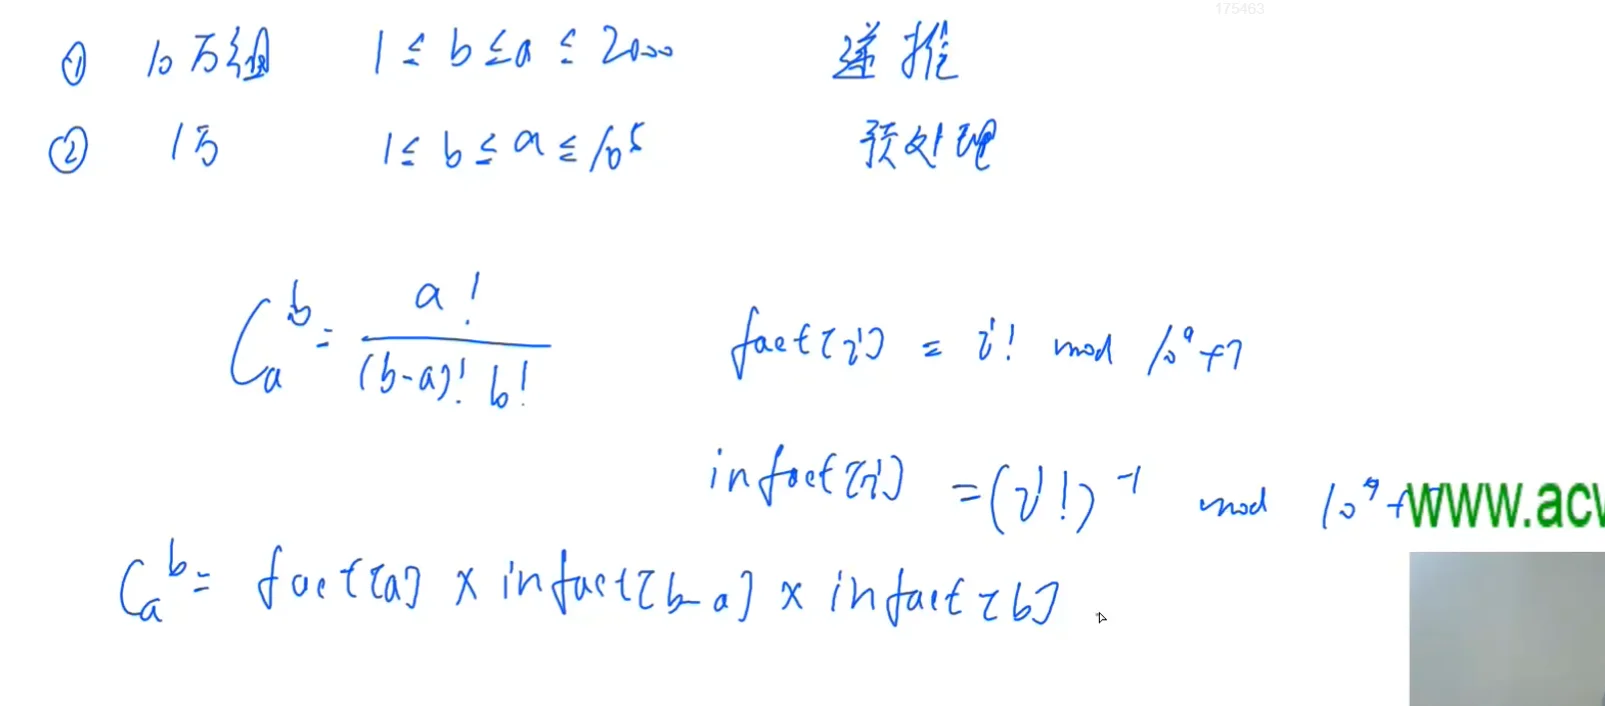 175463
① 10万组 1 ≤ b ≤ a ≤ 2000 递推
② 1万 1 ≤ b ≤ a ≤ 10^5 预处理
C_a^b = a! / (b-a)! b! fact[i] = i! mod 10^9+7
infact[i] = (i!)^-1 mod 10^9+
www.acw
C_a^b = fact[a] × infact[b-a] × infact[b]